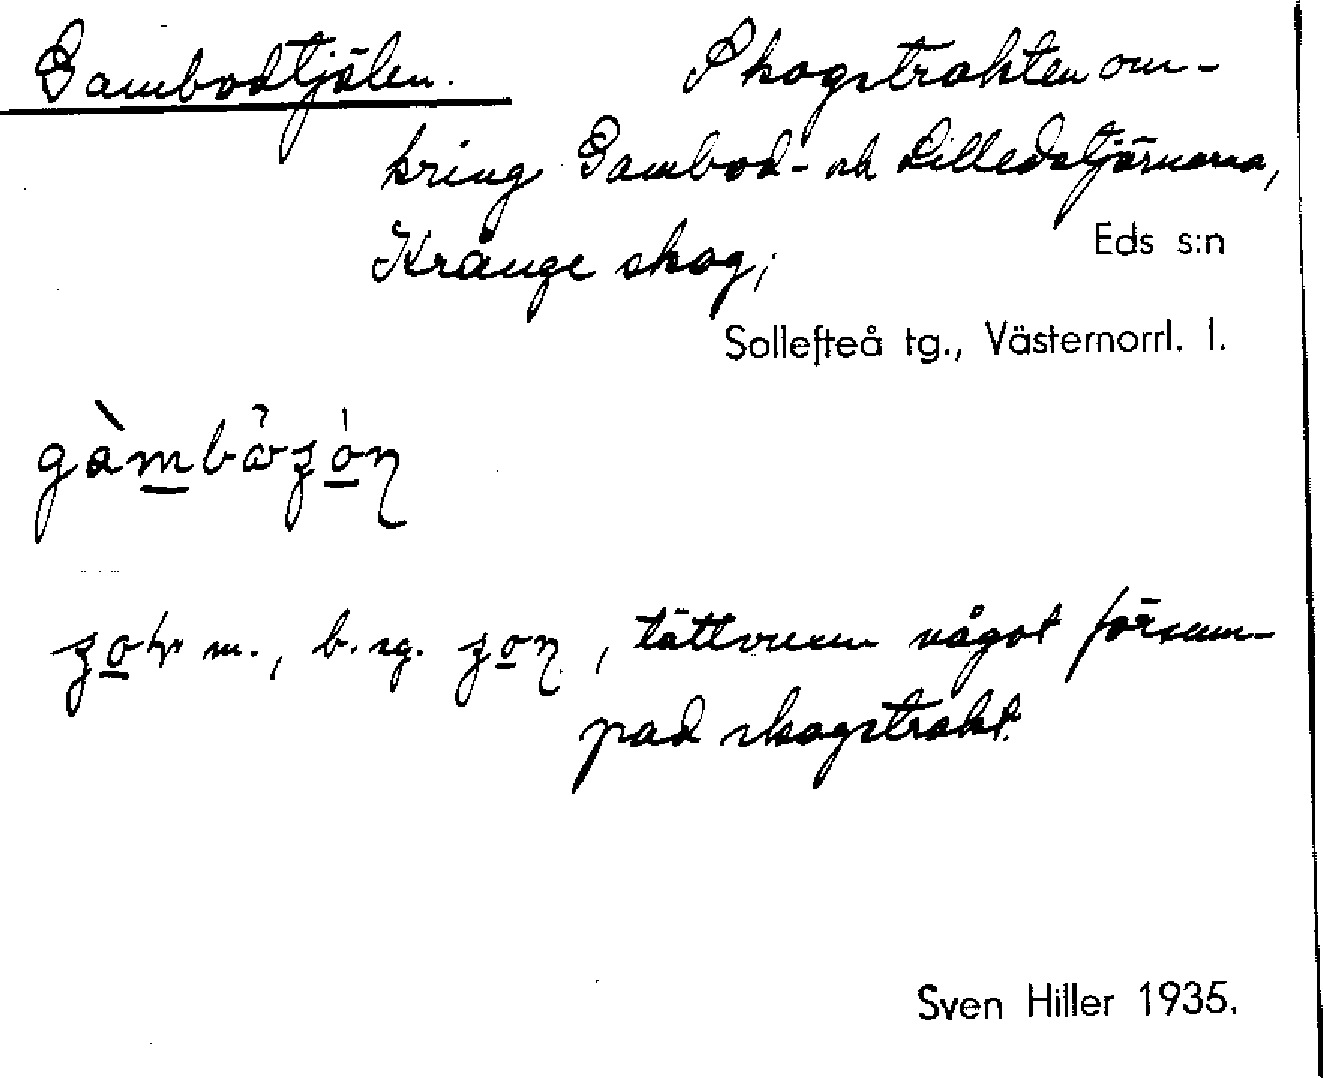 Gambodtjälen. Skogstrakten om-
kring Gambod- och Lilledstjärnarna,
Krånge skog; Eds s:n
Sollefteå tg., Västernorrl. l.
m., b. sg. , tättvuxen något försum-
pad skogstrakt.
Sven Hiller 1935.